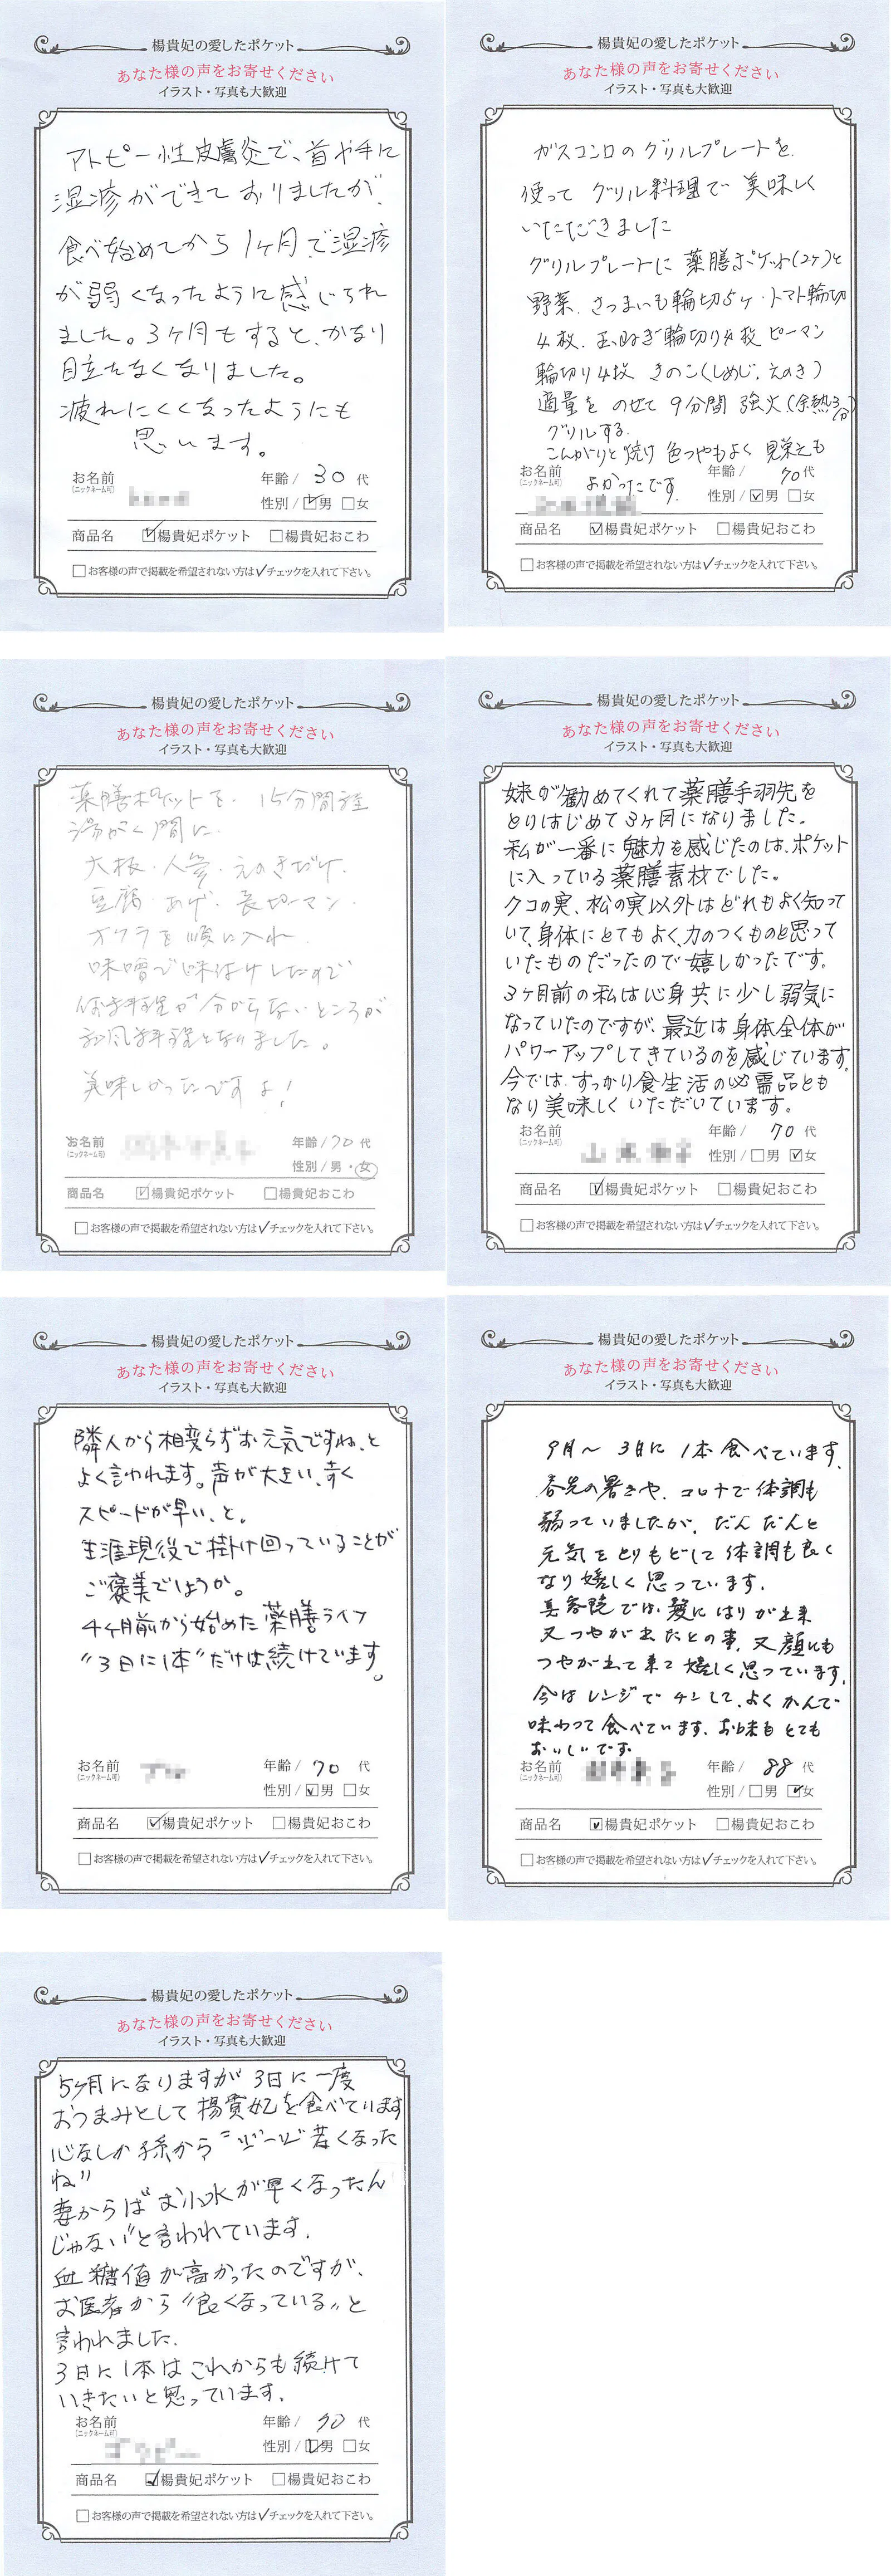 楊貴妃の愛したポケット
あなた様の声をお寄せください
イラスト・写真も大歓迎
アトピー性皮膚炎で、首や手に
湿疹ができておりましたが、
食べ始めてから1ヶ月で湿疹
が弱くなったように感じられ
ました。3ヶ月もすると、かなり
目立たなくなりました。
疲れにくくなったようにも
思います。
お名前
(ニックネーム可)
年齢/ 30 代
性別/☑男 □女
商品名 ☑楊貴妃ポケット □楊貴妃おこわ
□お客様の声で掲載を希望されない方は✓チェックを入れて下さい。
楊貴妃の愛したポケット
あなた様の声をお寄せください
イラスト・写真も大歓迎
ガスコンロのグリルプレートを
使って グリル料理で 美味しく
いただきました
グリルプレートに 薬膳ポケット(2ヶ)と
野菜、さつまいも輪切5ヶ・トマト輪切
4枚、玉ねぎ輪切り4枚 ピーマン
輪切り4枚 きのこ(しめじ、えのき)
適量を のせて 9分間 強火(余熱3分)
グリルする。
こんがりと焼け 色つやもよく 見栄えも
よかったです。
お名前
(ニックネーム可)
年齢/ 70代
性別/☑男 □女
商品名 ☑楊貴妃ポケット □楊貴妃おこわ
□お客様の声で掲載を希望されない方は✓チェックを入れて下さい。
楊貴妃の愛したポケット
あなた様の声をお寄せください
イラスト・写真も大歓迎
薬膳ポケットを、15分間程
間に、
大根・人参・えのきだけ、
豆腐・あげ・長ピーマン・
オクラを順に入れ
味噌で味付けしたので
が分からないところが
和風料理となりました。
美味しかったですよ!
お名前
(ニックネーム可)
年齢/70 代
性別/男・女
商品名 ☑楊貴妃ポケット □楊貴妃おこわ
□お客様の声で掲載を希望されない方は✓チェックを入れて下さい。
楊貴妃の愛したポケット
あなた様の声をお寄せください
イラスト・写真も大歓迎
妹が勧めてくれて薬膳手羽先を
とりはじめて3ヶ月になりました。
私が一番に魅力を感じたのは、ポケット
に入っている薬膳素材でした。
クコの実、松の実以外はどれもよく知って
いて、身体にとてもよく、力のつくものと思って
いたものだったので嬉しかったです。
3ヶ月前の私は心身共に少し弱気に
なっていたのですが、最近は身体全体が
パワーアップしてきているのを感じています。
今では、すっかり食生活の必需品とも
なり美味しくいただいています。
お名前
(ニックネーム可)
年齢/ 70 代
性別/□男 ☑女
商品名 ☑楊貴妃ポケット □楊貴妃おこわ
□お客様の声で掲載を希望されない方は✓チェックを入れて下さい。
楊貴妃の愛したポケット
あなた様の声をお寄せください
イラスト・写真も大歓迎
隣人から相変らずお元気ですね、と
よく言われます。声が大きい、歩く
スピードが早い、と。
生涯現役で掛け回っていることが
ご褒美でしょうか。
4ヶ月前から始めた薬膳ライフ
“3日に1本”だけは続けています。
お名前
(ニックネーム可)
年齢/ 70 代
性別/☑男 □女
商品名 ☑楊貴妃ポケット □楊貴妃おこわ
□お客様の声で掲載を希望されない方は✓チェックを入れて下さい。
楊貴妃の愛したポケット
あなた様の声をお寄せください
イラスト・写真も大歓迎
9月〜 3日に 1本食べています。
春先の暑さや、コロナで体調も
弱っていましたが、だんだんと
元気をとりもどして体調も良く
なり嬉しく思っています。
美容院では、髪にはりが出来
又つやが出たとの事、又顔にも
つやが出て来て嬉しく思っています。
今はレンジでチンして、よくかんで
味わって食べています。お味もとても
おいしいです。
お名前
(ニックネーム可)
年齢/ 88 代
性別/□男 ☑女
商品名 ☑楊貴妃ポケット □楊貴妃おこわ
□お客様の声で掲載を希望されない方は✓チェックを入れて下さい。
楊貴妃の愛したポケット
あなた様の声をお寄せください
イラスト・写真も大歓迎
5ヶ月になりますが3日に一度
おつまみとして楊貴妃を食べています
心なしか孫から“ジージ若くなった
ね”
妻からは“お小水が早くなったん
じゃない”と言われています。
血糖値が高かったのですが、
お医者から“良くなっている”と
言われました。
3日に1本はこれからも続けて
いきたいと思っています。
お名前
(ニックネーム可)
年齢/ 70 代
性別/☑男 □女
商品名 ☑楊貴妃ポケット □楊貴妃おこわ
□お客様の声で掲載を希望されない方は✓チェックを入れて下さい。